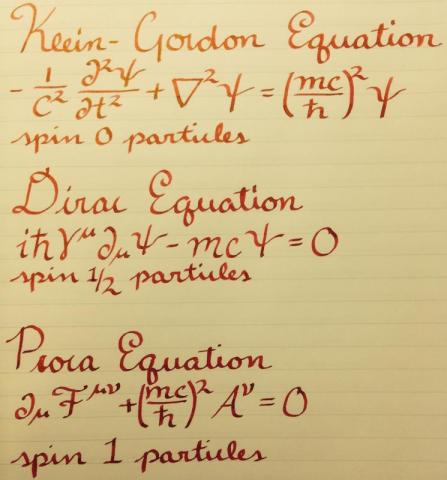 Klein-Gordon Equation
- 1/c² ∂²Ψ/∂t² + ∇²Ψ = (mc/ħ)² Ψ
spin 0 particles
Dirac Equation
iħγ^μ ∂_μ Ψ - mcΨ = 0
spin 1/2 particles
Proca Equation
∂_μ F^μν + (mc/ħ)² A^ν = 0
spin 1 particles